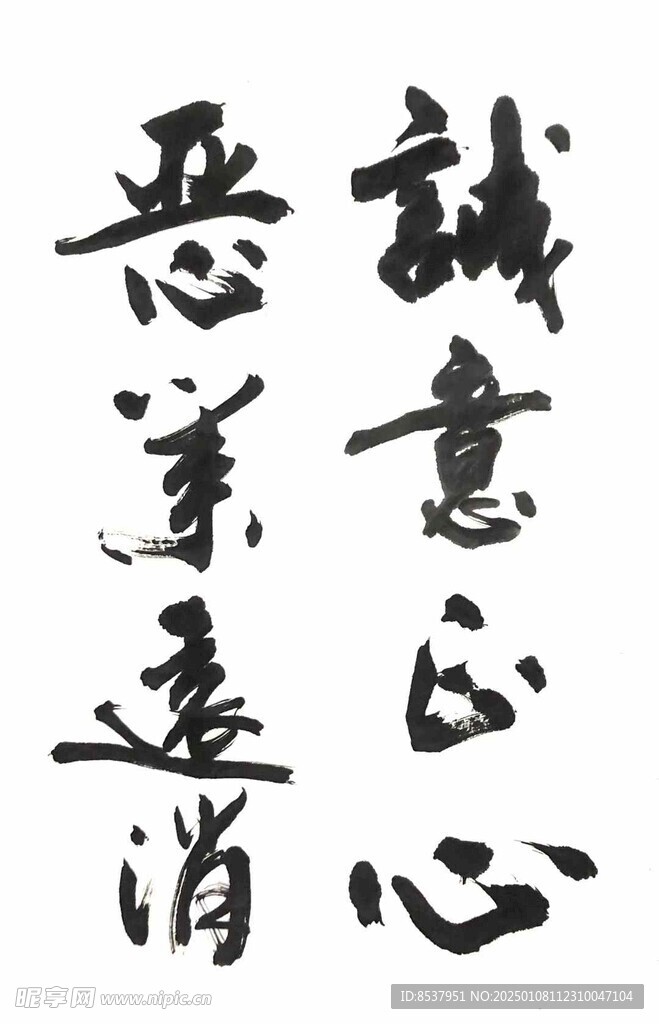 誠意正心
恶業遠消
昵享网 www.nipic.cn
ID:8537951 NO:20250108112310047104